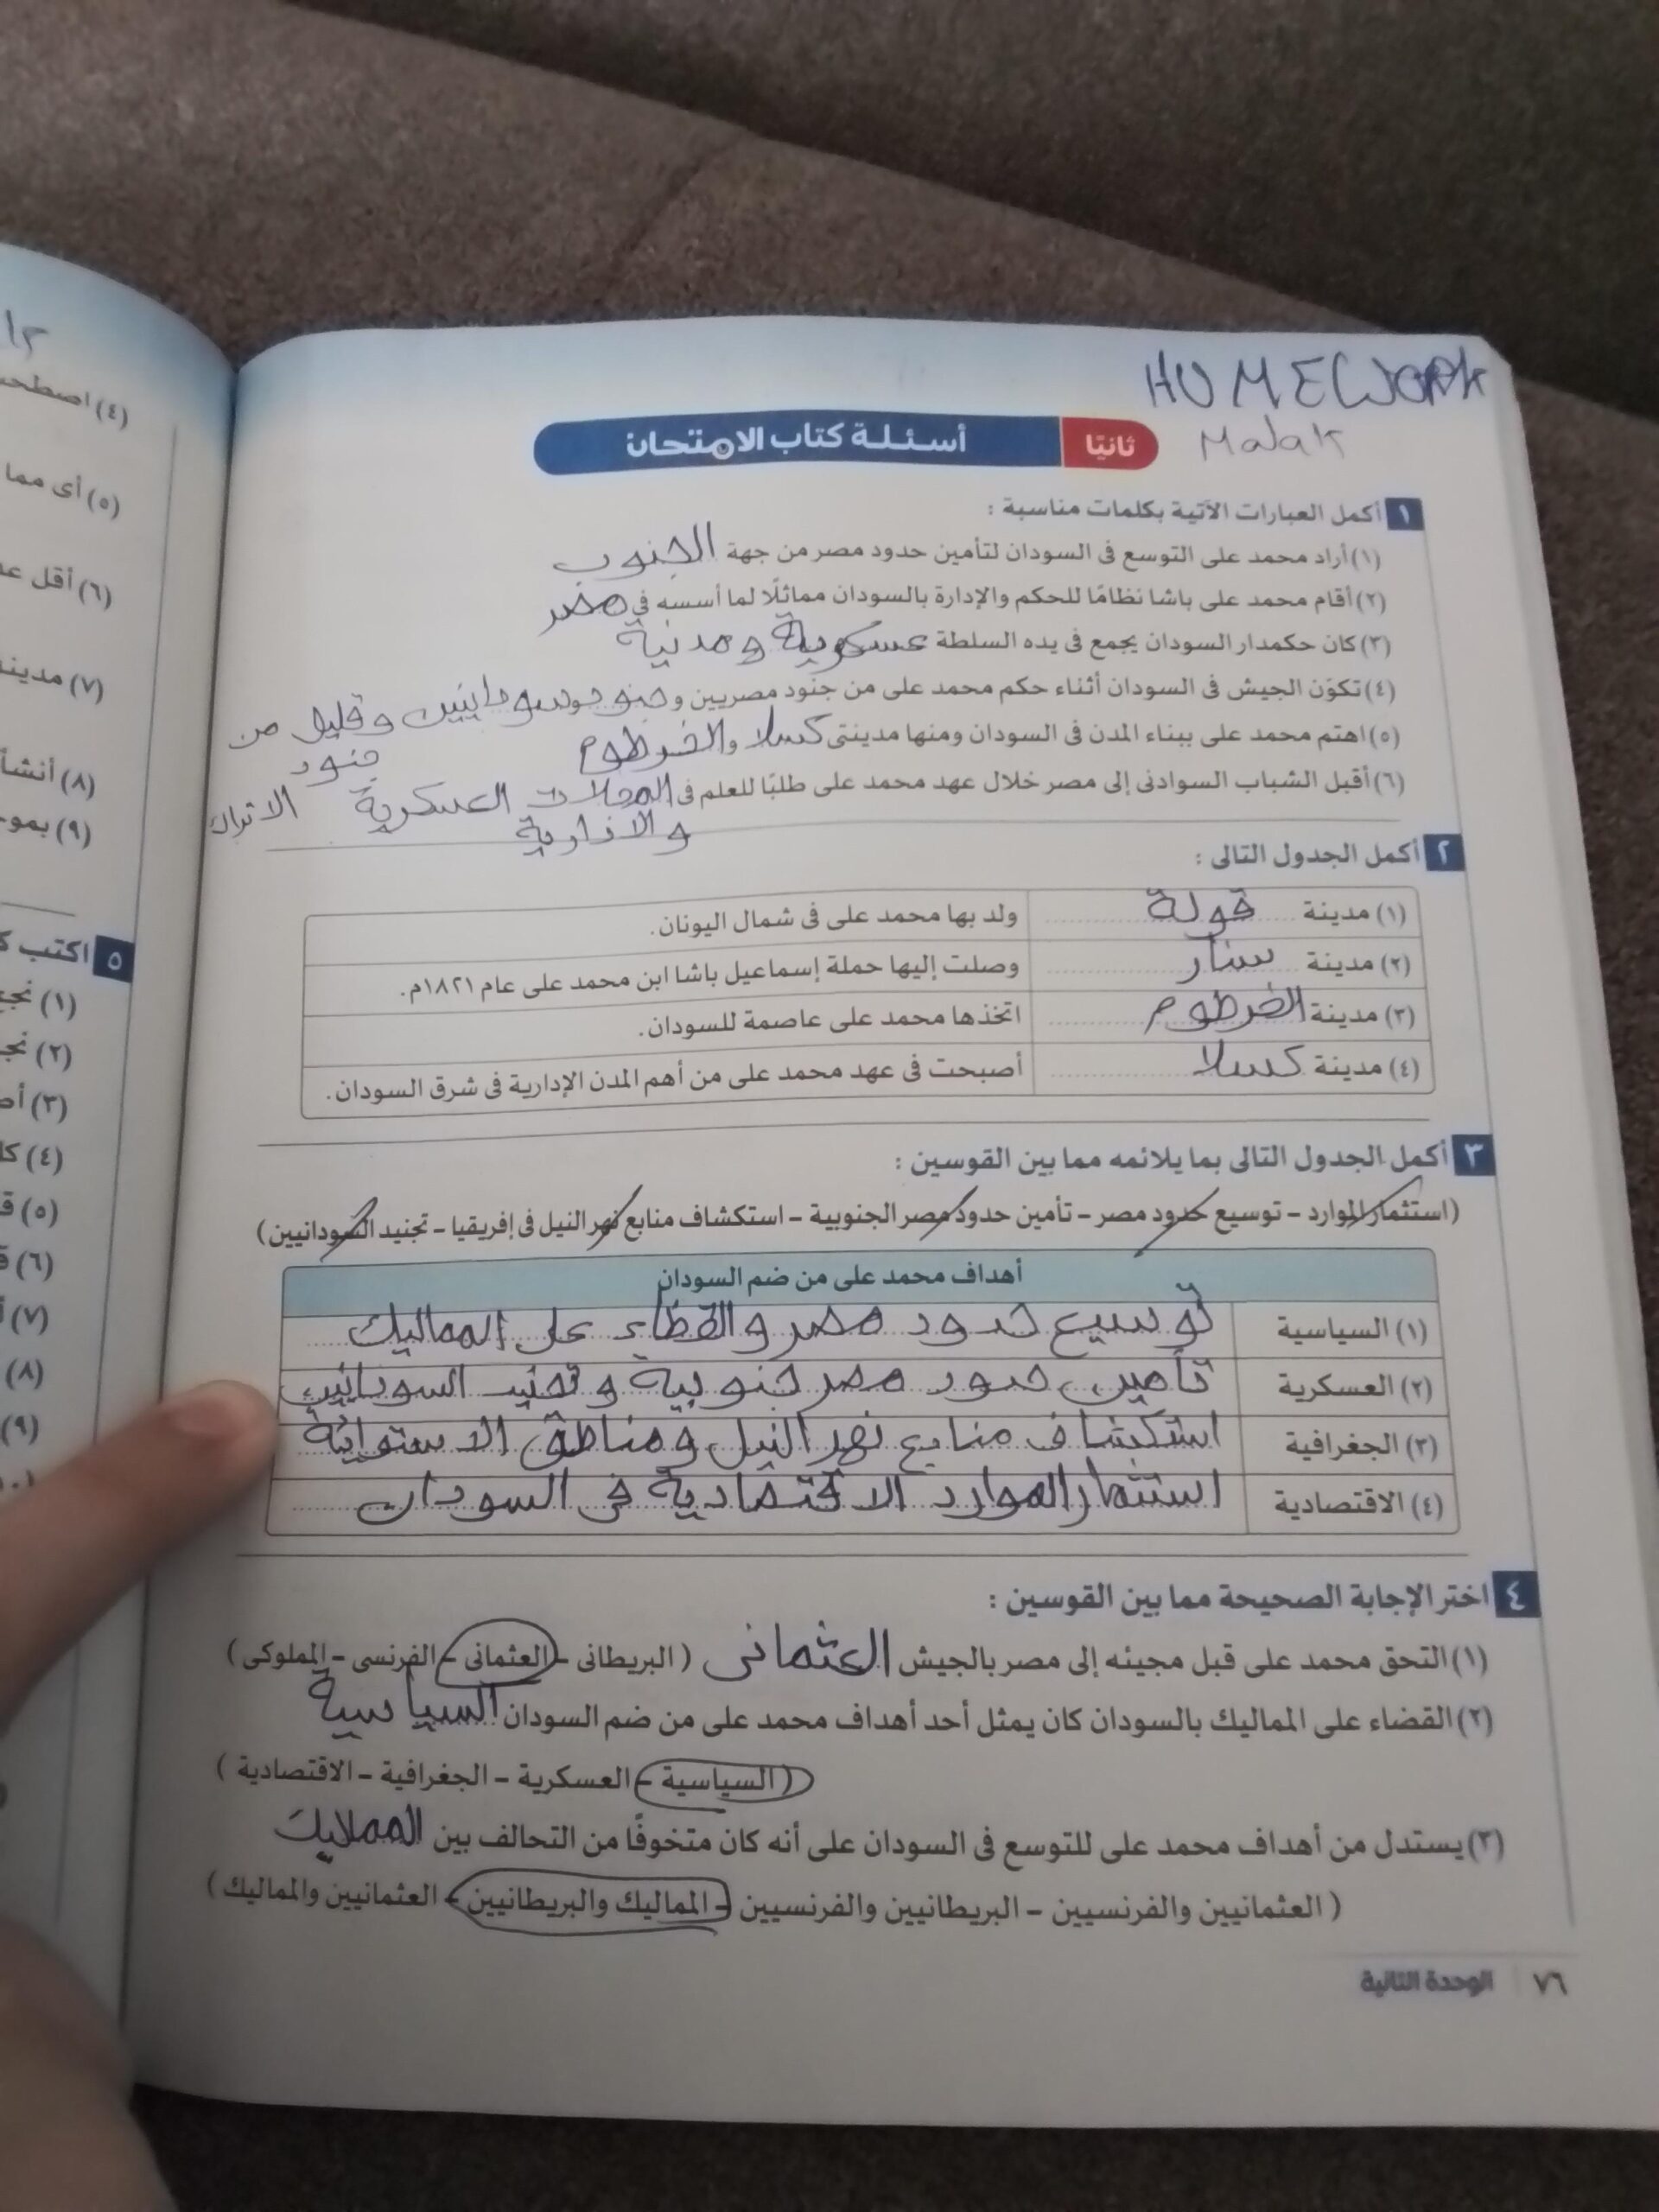 HOMEWORK
Malak
ثانيًا أسئلة كتاب الامتحان
١ أكمل العبارات الآتية بكلمات مناسبة :
(١) أراد محمد على التوسع فى السودان لتأمين حدود مصر من جهة الجنوب
(٢) أقام محمد على باشا نظامًا للحكم والإدارة بالسودان مماثلًا لما أسسه في مصر
(٣) كان حكمدار السودان يجمع فى يده السلطة عسكرية و مدنية
(٤) تكوّن الجيش فى السودان أثناء حكم محمد على من جنود مصريين و جنود سودانيين و قليل من
جنود
الاتراك
(٥) اهتم محمد على ببناء المدن فى السودان ومنها مدينتى كسلا و الخرطوم
(٦) أقبل الشباب السوادنى إلى مصر خلال عهد محمد على طلبًا للعلم فى المجلات العسكرية
و الادارية
٢ أكمل الجدول التالى :
(١) مدينة قولة ولد بها محمد على فى شمال اليونان.
(٢) مدينة سنار وصلت إليها حملة إسماعيل باشا ابن محمد على عام ١٨٢١م.
(٣) مدينة الخرطوم اتخذها محمد على عاصمة للسودان.
(٤) مدينة كسلا أصبحت فى عهد محمد على من أهم المدن الإدارية فى شرق السودان.
٣ أكمل الجدول التالى بما يلائمه مما بين القوسين :
(استثمار الموارد – توسيع حدود مصر – تأمين حدود مصر الجنوبية – استكشاف منابع نهر النيل فى إفريقيا – تجنيد السودانيين)
أهداف محمد على من ضم السودان
(١) السياسية توسيع حدود مصر و القظاء على المماليك
(٢) العسكرية تأمين حدود مصر جنوبية و تجنيد السودانيين
(٣) الجغرافية استكشاف منابع نهر النيل و مناطق الاستوائة
(٤) الاقتصادية استثمار الموارد الاقتصادية فى السودان
٤ اختر الإجابة الصحيحة مما بين القوسين :
(١) التحق محمد على قبل مجيئه إلى مصر بالجيش العثمانى (البريطانى – العثمانى – الفرنسى – المملوكى)
(٢) القضاء على المماليك بالسودان كان يمثل أحد أهداف محمد على من ضم السودان السياسية
(السياسية – العسكرية – الجغرافية – الاقتصادية)
(٣) يستدل من أهداف محمد على للتوسع فى السودان على أنه كان متخوفًا من التحالف بين المملايك
(العثمانيين والفرنسيين – البريطانيين والفرنسيين – المماليك والبريطانيين – العثمانيين والمماليك)
٧٦ الوحدة الثانية
(٥) أى مما
(٦) أقل
(٧) مدينة
(٨) أنشأ
(٩) بمو
٥ اكتب
(١)
(٢)
(٣)
(٤)
(٥)
(٦)
(٧)
(٨)
(٩)